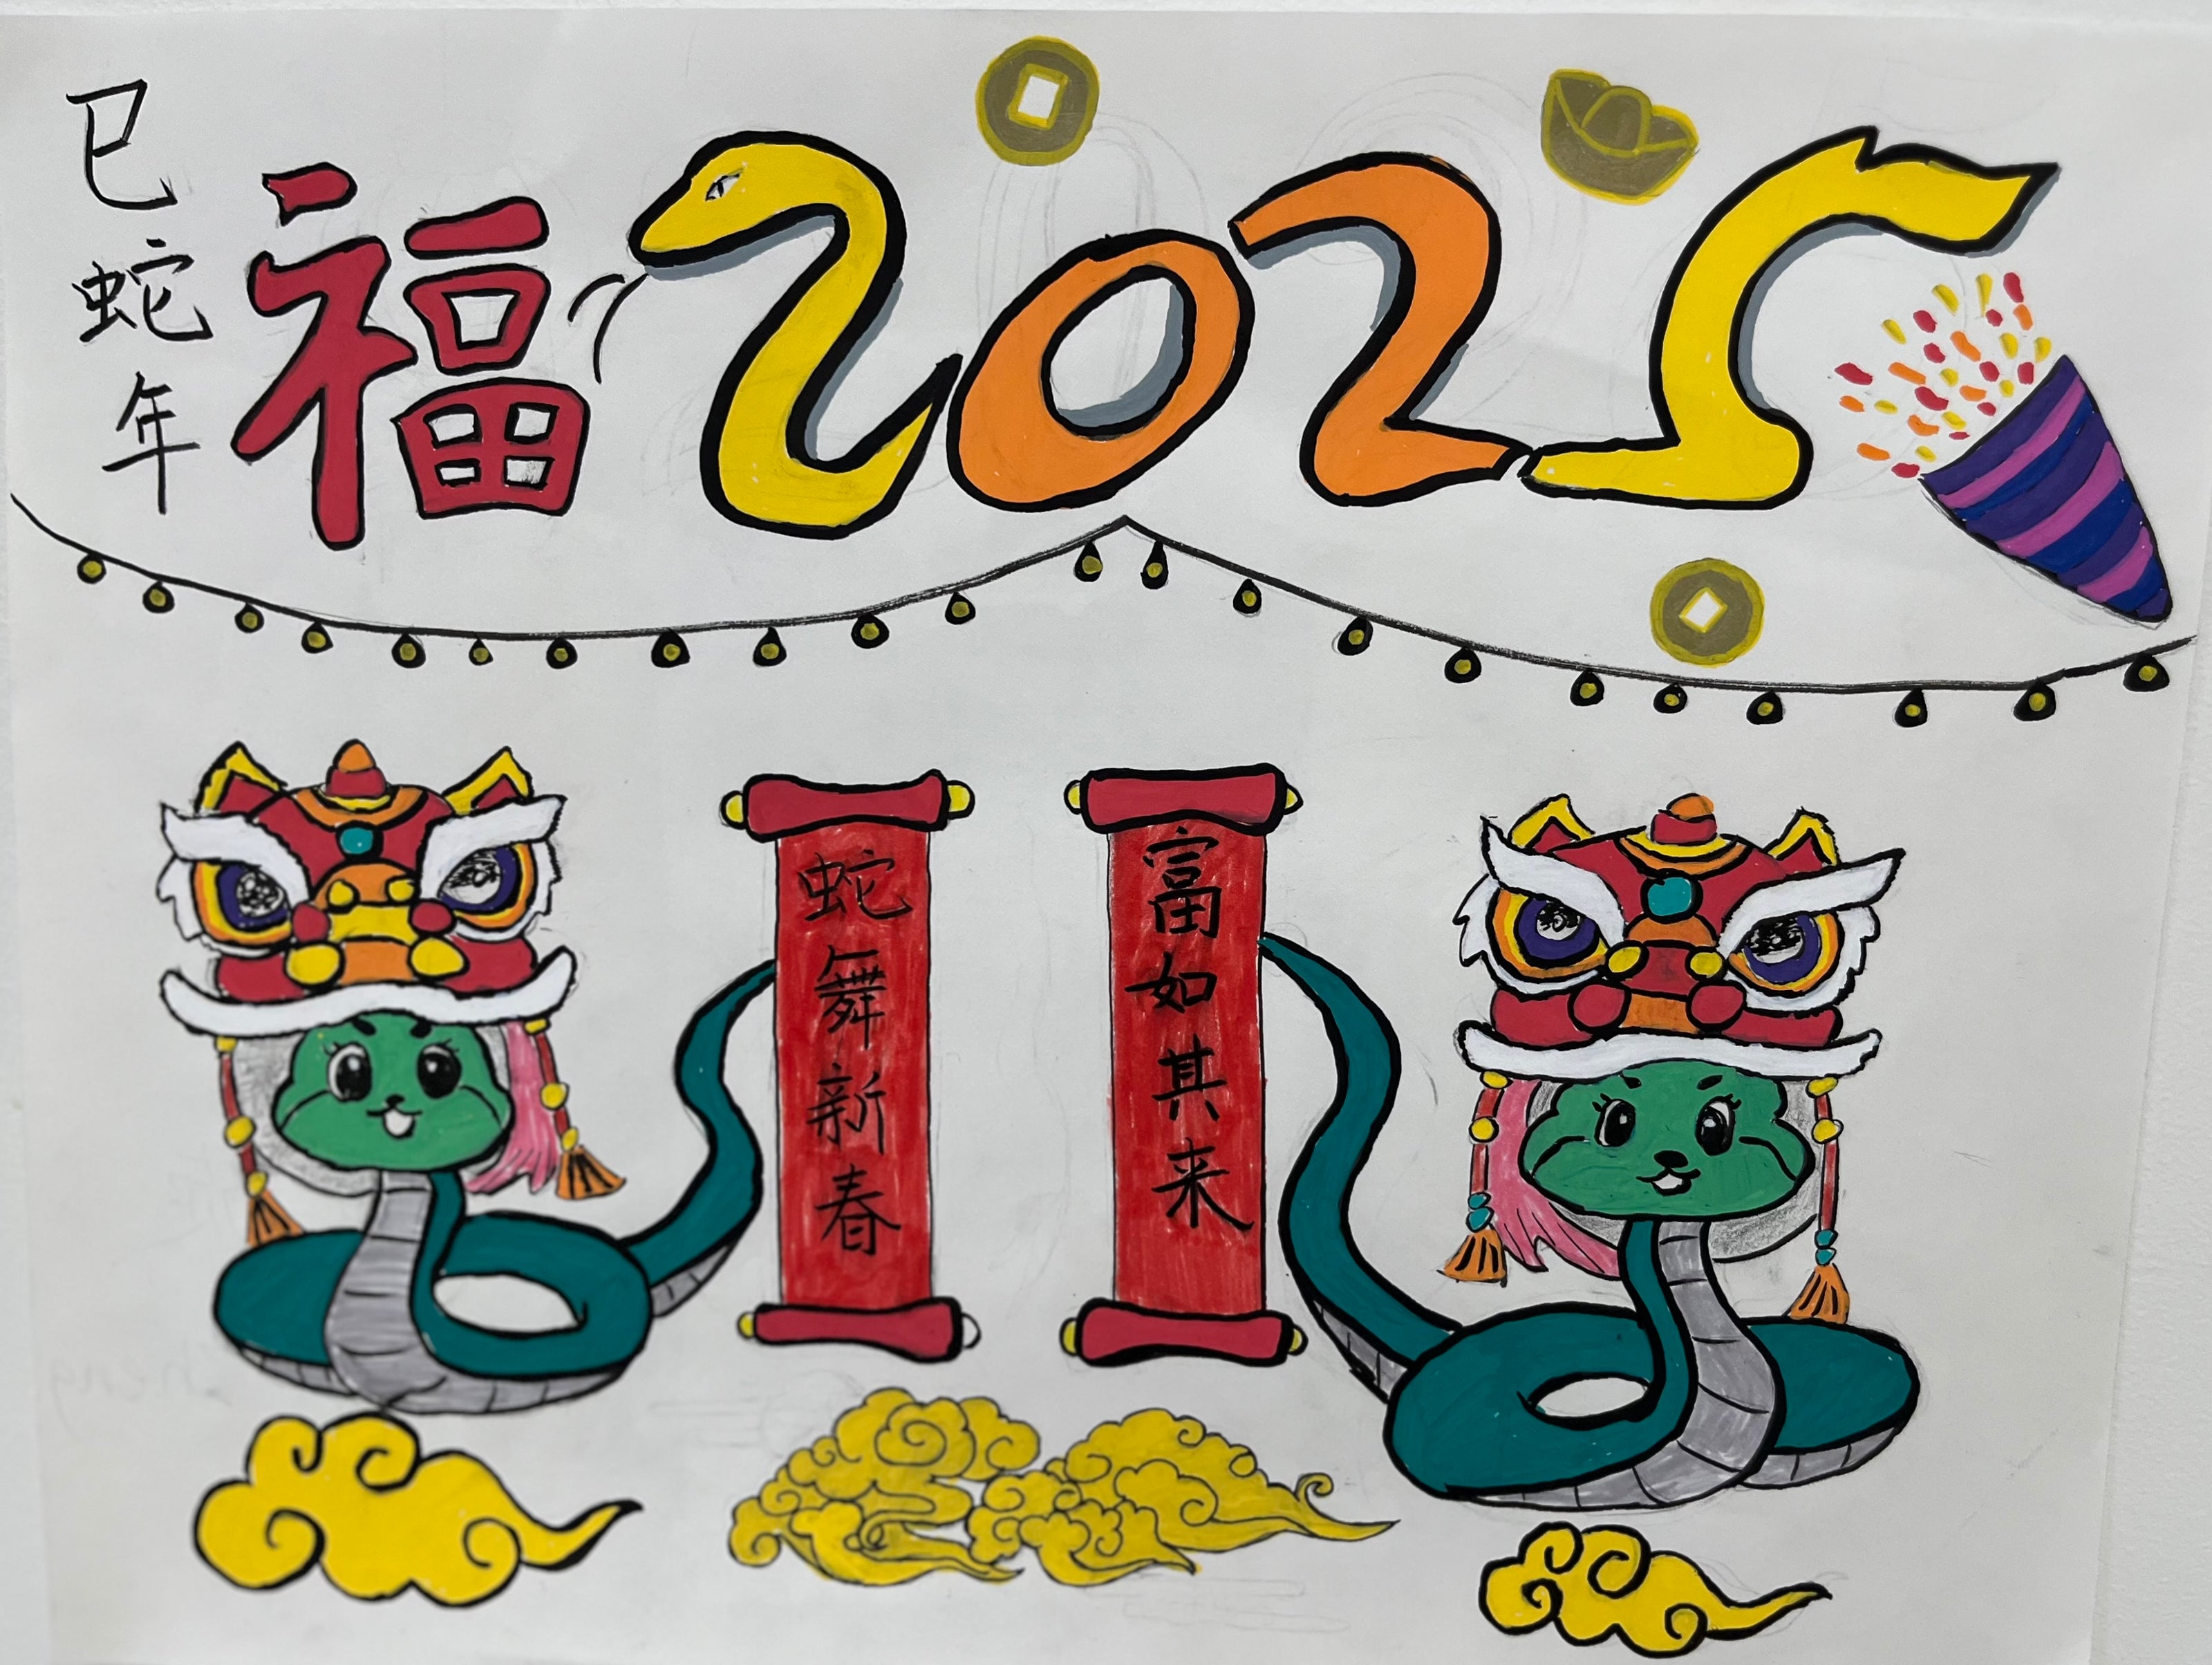 巳蛇年
福2025
蛇舞新春
富如其来